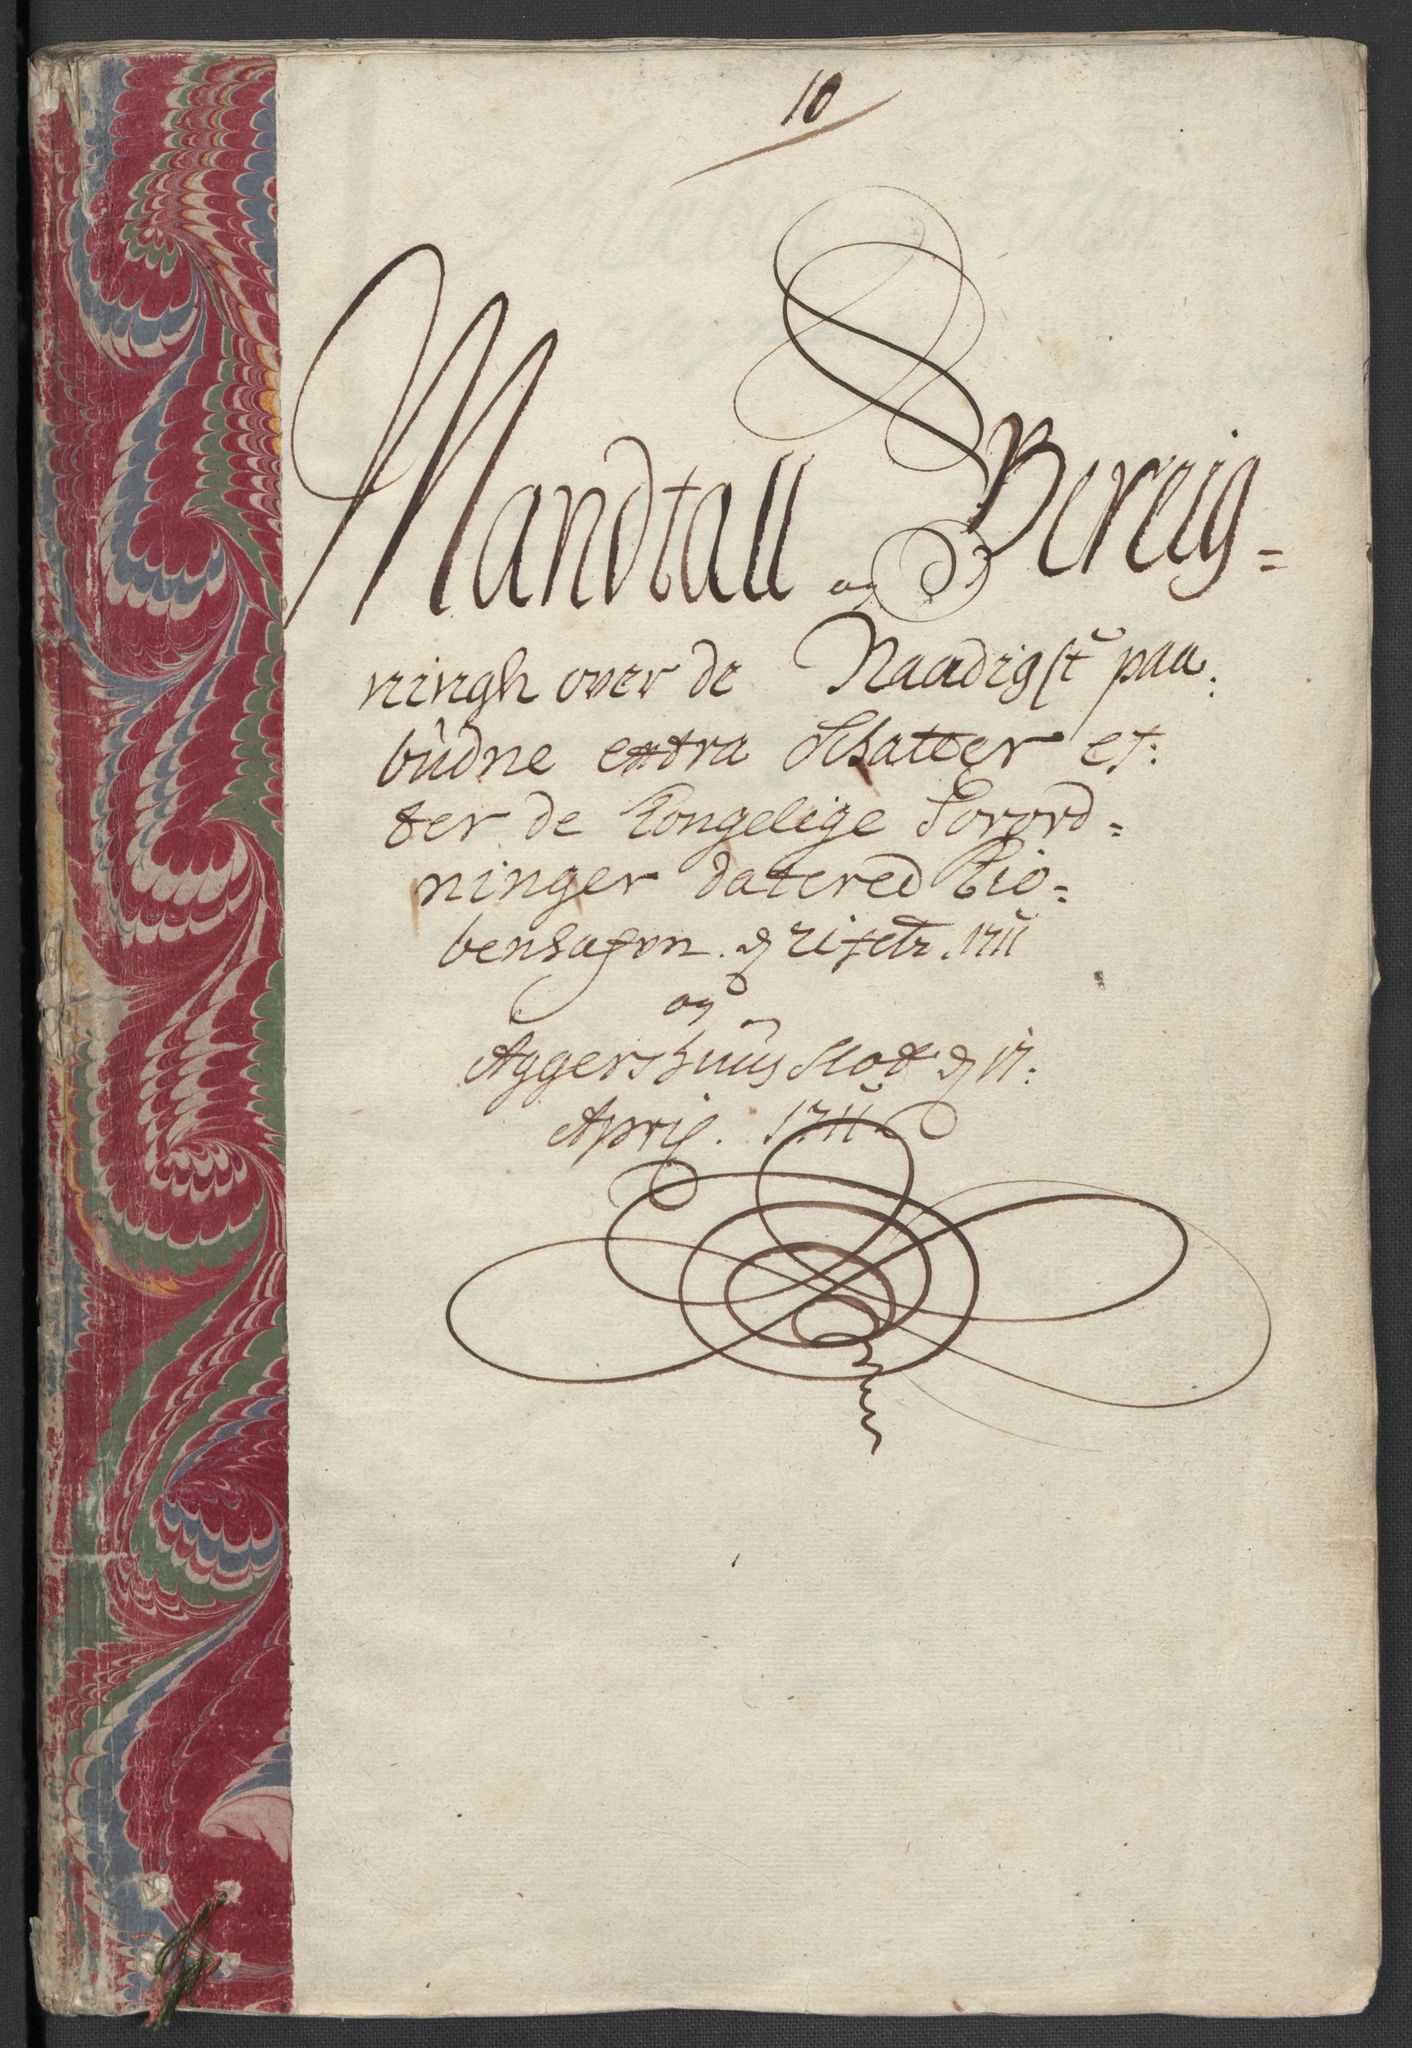 10
Mandtall og Bereig=
ningh over de Naadigst paa:
budne extra Schatter ef:
ter de Kongelige Forord=
ninger datered Kio=
benhafen. d 21 febr. 1711
og
Aggershuus Slot d 17:
April. 1711